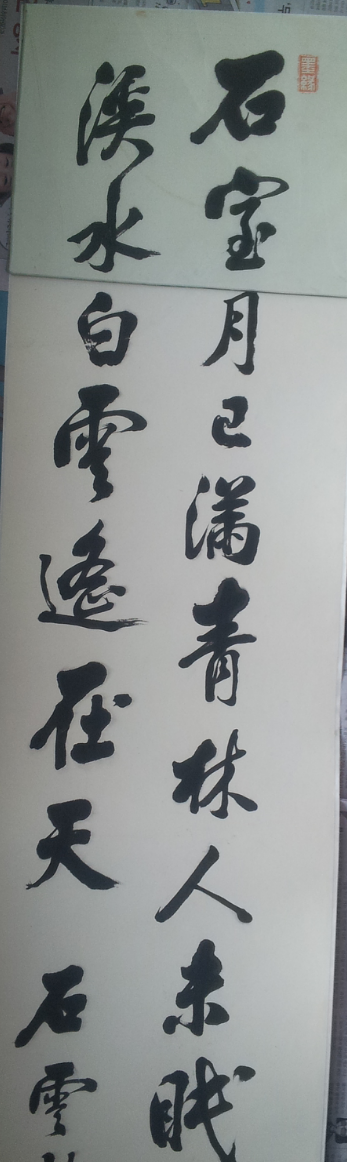 墨緣
石室月已滿青林人未眠
溪水白雲遙在天
石雲